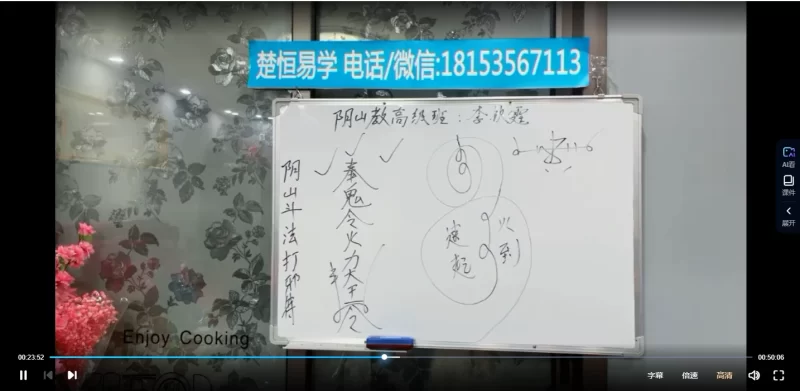 楚恒易学 电话/微信:18153567113
阴山教高级班:李
阴山斗法打邪师
奉鬼令火力大王令
速起
火到
Enjoy Cooking
AI看
课件
展开
00:23:52
00:50:06
字幕
倍速
高清